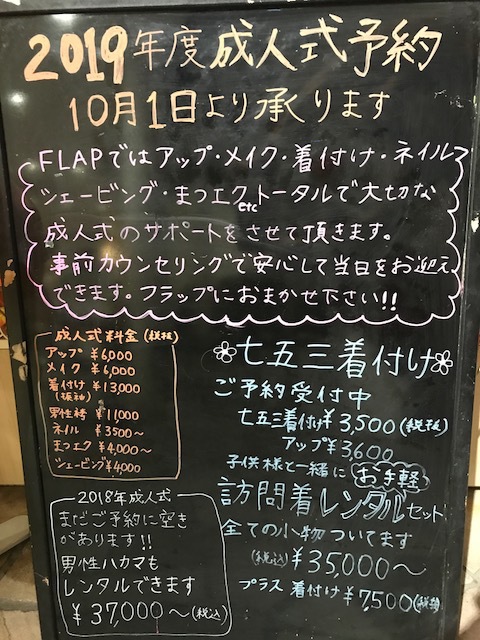 2019年度成人式予約
10月1日より承ります
FLAPではアップ・メイク・着付け・ネイル
シェービング・まつエクetcトータルで大切な
成人式のサポートをさせて頂きます。
事前カウンセリングで安心して当日をお迎え
できます。フラップにおまかせ下さい!!
成人式料金(税抜)
アップ ¥6,000
メイク ¥6,000
着付け ¥13,000
(振袖)
男性袴 ¥11,000
ネイル ¥3500〜
まつエク ¥4,000〜
シェービング ¥4000
2018年成人式
まだご予約に空き
があります!!
男性ハカマも
レンタルできます
¥37,000〜(税込)
七五三着付け
ご予約受付中
七五三着付け¥3,500(税抜)
アップ¥3,600
子供様と一緒にお手軽
訪問着レンタルセット
全ての小物ついてます
(税込)¥35,000〜
プラス 着付け¥7,500(税抜)